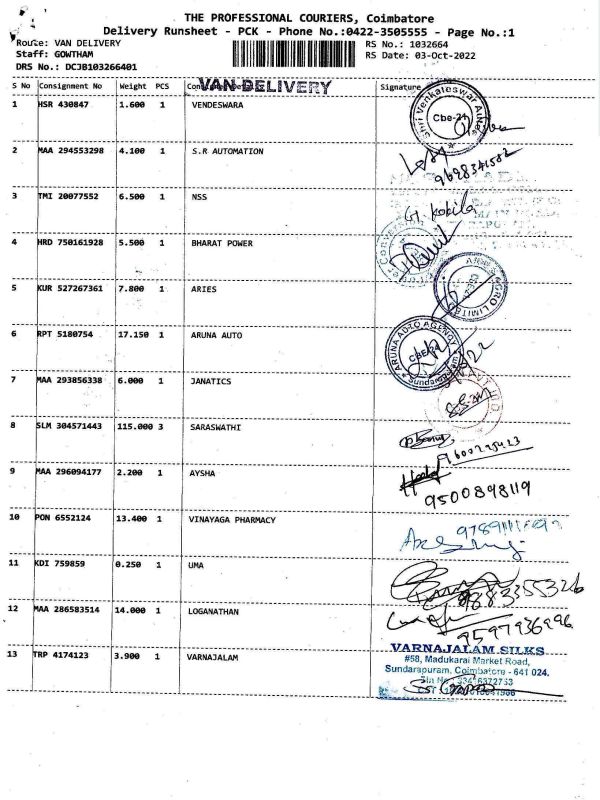 THE PROFESSIONAL COURIERS, Coimbatore
Delivery Runsheet - PCK - Phone No.:0422-3505555 - Page No.:1
Route: VAN DELIVERY
RS No.: 1032664
Staff: GOWTHAM
RS Date: 03-Oct-2022
DRS No.: DCJB103266401
VAN DELIVERY
S No Consignment No Weight PCS Signature
1 HSR 430847 1.600 1 VENDESWARA
Shri Venkateswar
Cbe-21
2 MAA 294553298 4.100 1 S.R AUTOMATION
9698341582
3 TMI 20077552 6.500 1 NSS
G. Kokila
4 HRD 750161928 5.500 1 BHARAT POWER
5 KUR 527267361 7.800 1 ARIES
AGRO LIMITED
6 RPT 5180754 17.150 1 ARUNA AUTO
ARUNA AGENCY
CBE-24
7 MAA 293856338 6.000 1 JANATICS
8 SLM 304571443 115.000 3 SARASWATHI
9 MAA 296094177 2.200 1 AYSHA
9500898119
10 PON 6552124 13.400 1 VINAYAGA PHARMACY
11 KDI 759859 0.250 1 UMA
9883355326
12 MAA 286583514 14.000 1 LOGANATHAN
9597936996
13 TRP 4174123 3.900 1 VARNAJALAM
VARNAJALAM SILKS
#58, Madukarai Market Road,
Sundarapuram, Coimbatore - 641 024.